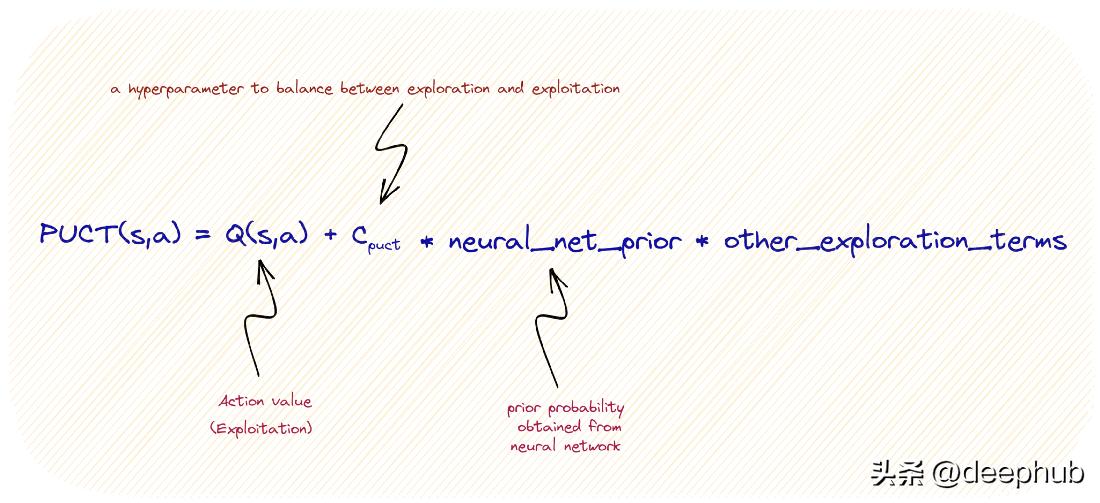 a hyperparameter to balance between exploration and exploitation
PUCT(s,a) = Q(s,a) + Cpuct * neural_net_prior * other_exploration_terms
Action value
(Exploitation)
prior probability
obtained from
neural network
头条 @deephub